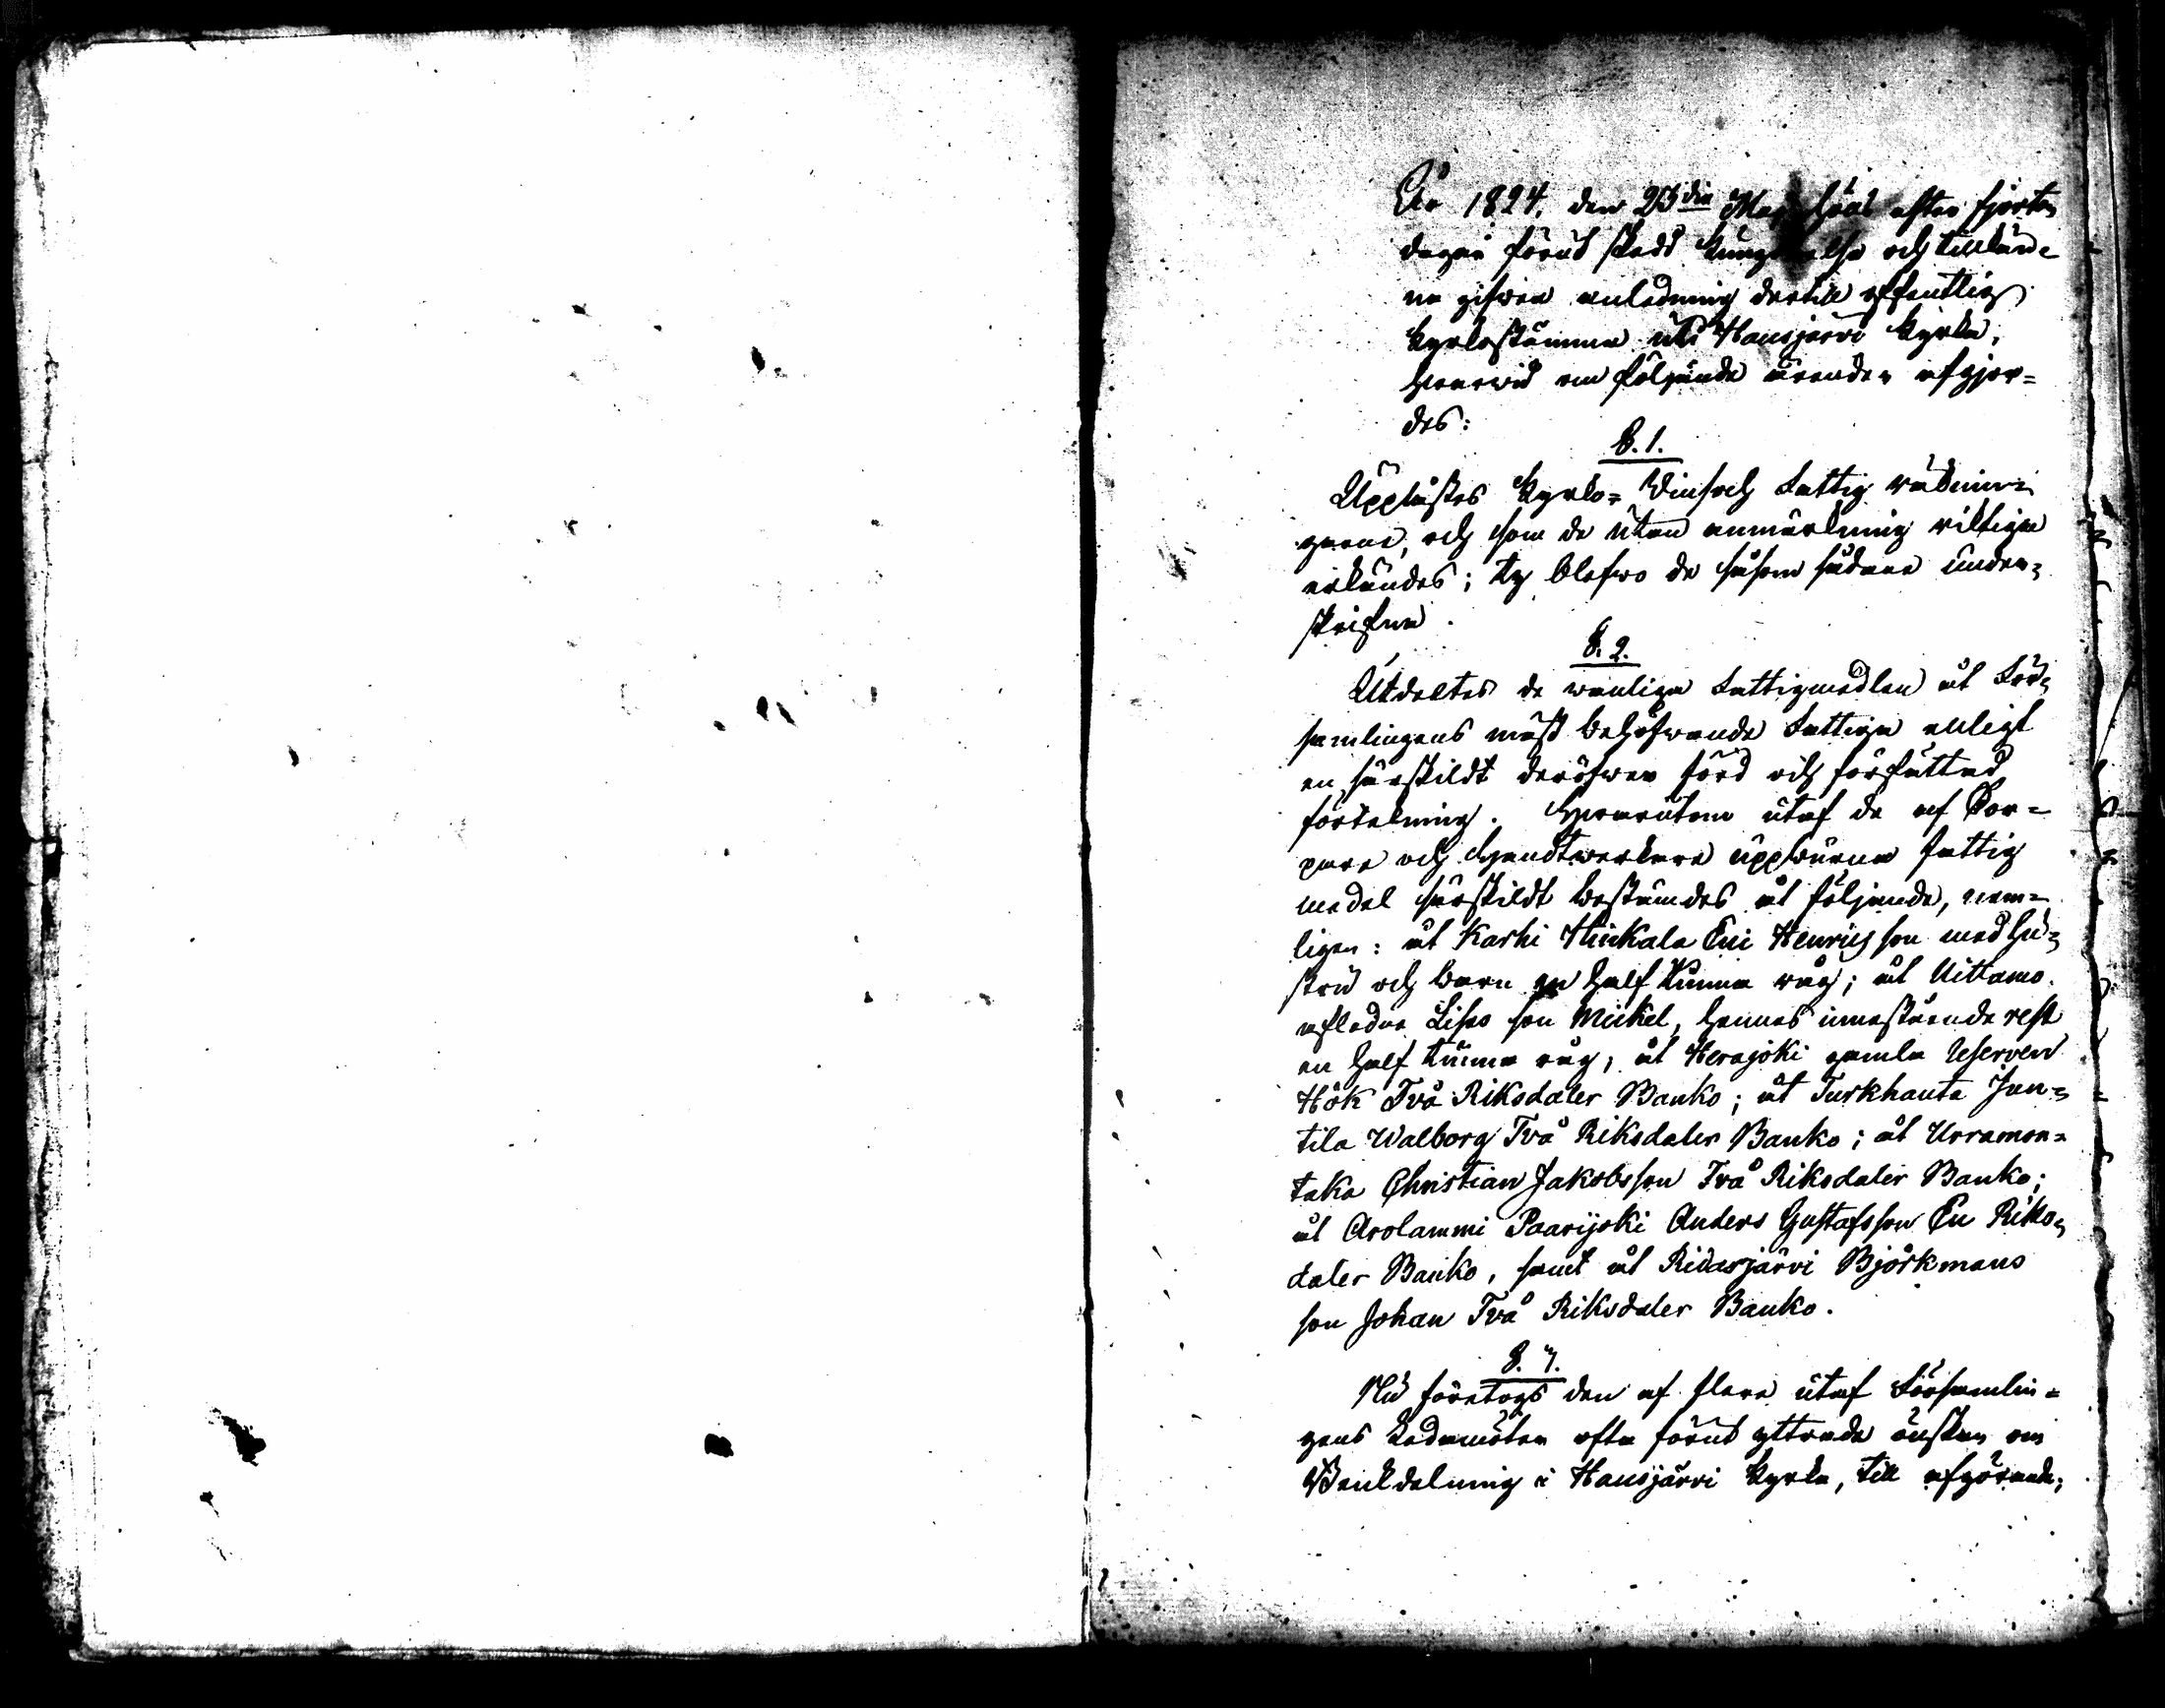 År 1824. den 23die Maj hölts efter fjorton
dagar förut skedd kungörelse och tillkän-
na gifwen anledning dertill offentelig
kyrkostämma uti Hausjärvi kyrka,
hwarwid om följande ärender afgjor=
des:
§. 1.
Upplästes kyrko= Vin och Fattig räknin=
garne, och som de utan anmärkning riktige
erkändes; ty blefwo de såsom sådane under=
skrifne.
§. 2.
Utdeltes de wanliga Fattigmedlen åt För=
samlingens mäst behöfwande Fattiga enligt
en särskildt deröfwer förd och författad
fördelning. Hwarutom utaf de af Tor=
pare och Handtwerkare uppburne fattig
medel särskildt bestämdes åt följande, nem=
ligen: åt Karhi Hinkala Eric Henricsson med hu=
stru och barn en half Tunna råg; åt Uittamo
afledne Lisas son Mickel, hennes innestående rest
en half Tunna råg; åt Herajoki gamla Reserven
Hök Två Riksdaler Banko; åt Turkhauta Jun=
tila Walborg Två Riksdaler Banko; åt Urramon=
taka Christian Jakobsson Två Riksdaler Banko;
åt Arolammi Paarijoki Anders Gustafsson En Riks=
daler Banko, samt åt Ridasjärvi Björkmans
son Johan Två Riksdaler Banko.
§. 3.
Nu företogs den af flera utaf Församlin=
gens Ledamöter ofta förut yttrade önskan om
Bänkdelning i Hausjärvi kyrka, till afgörande;